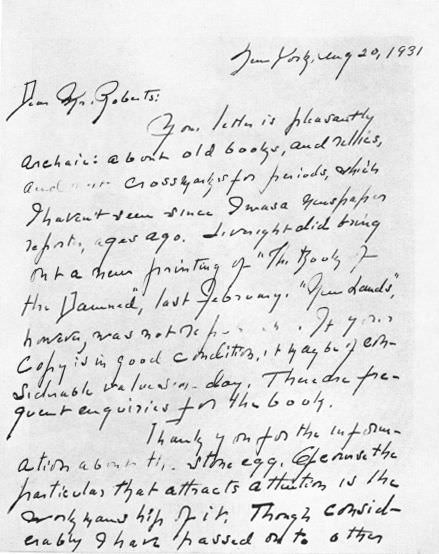 New York, Aug 20, 1931
Dear Mr. Roberts:
Your letter is pleasantly
archaic: about old books, and relics,
and crossmarks for periods, which
I haven't seen since I was a newspaper
reporter, ages ago. Liveright did bring
out a new printing of "The Book of
the Damned", last February. "New Lands",
however, was not. If your
copy is in good condition, it may be of con-
siderable value some day. There are fre-
quent enquiries for the book.
Thank you for the inform-
ation about the stone egg. Of course the
particular that attracts attention is the
workmanship of it. Though consid-
erably I have passed on to other